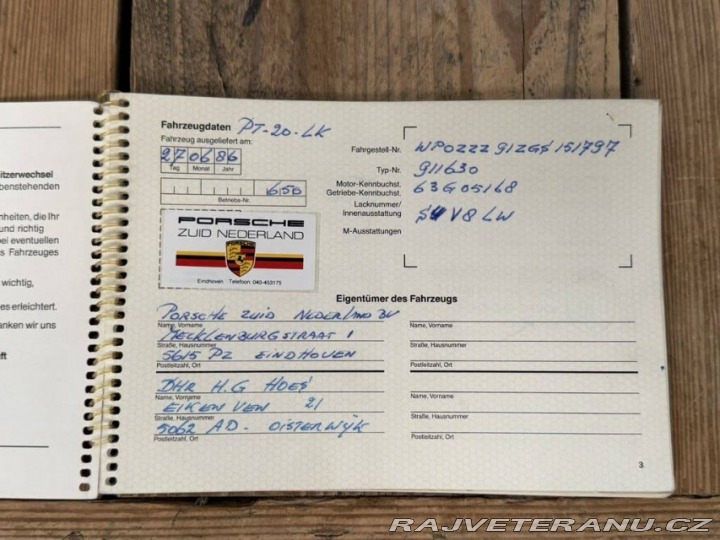 itzerwechsel
benstehenden
nheiten, die Ihr
und richtig
bei eventuellen
s Fahrzeuges
wichtig,
es erleichtert.
anken wir uns
ft
Fahrzeugdaten PT-20-LK
Fahrzeug ausgeliefert am:
27 06 86
Tag Monat Jahr
650
Betriebs-Nr.
PORSCHE
ZUID NEDERLAND
Eindhoven Telefoon: 040-453175
Fahrgestell-Nr. WPOZZZ91ZGS151797
Typ-Nr. 911630
Motor-Kennbuchst. 63G05168
Getriebe-Kennbuchst.
Lacknummer/
Innenausstattung V8 LW
M-Ausstattungen
Eigentümer des Fahrzeugs
PORSCHE ZUID NEDERLAND BV
Name, Vorname
MECKLENBURGSTRAAT 1
Straße, Hausnummer
5615 PZ EINDHOVEN
Postleitzahl, Ort
DHR H.G HOES
Name, Vorname
EIKENVEN 21
Straße, Hausnummer
5062 AD. OISTERWIJK
Postleitzahl, Ort
Name, Vorname
Straße, Hausnummer
Postleitzahl, Ort
Name, Vorname
Straße, Hausnummer
Postleitzahl, Ort
3
RAJVETERANU.CZ